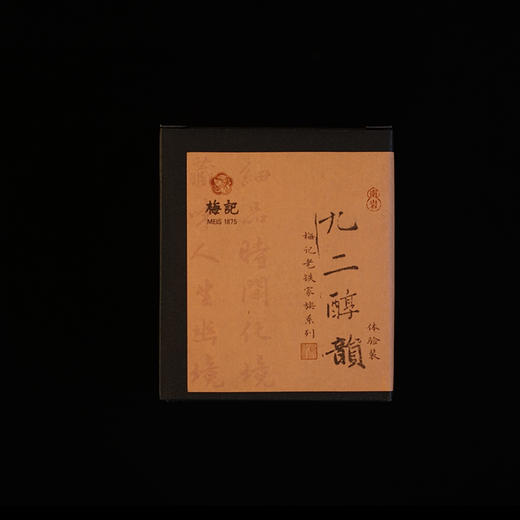 梅記
MEIS 1875
九二醇韻
梅记老铁家族系列
体验装
細品時間化境
人生幽境